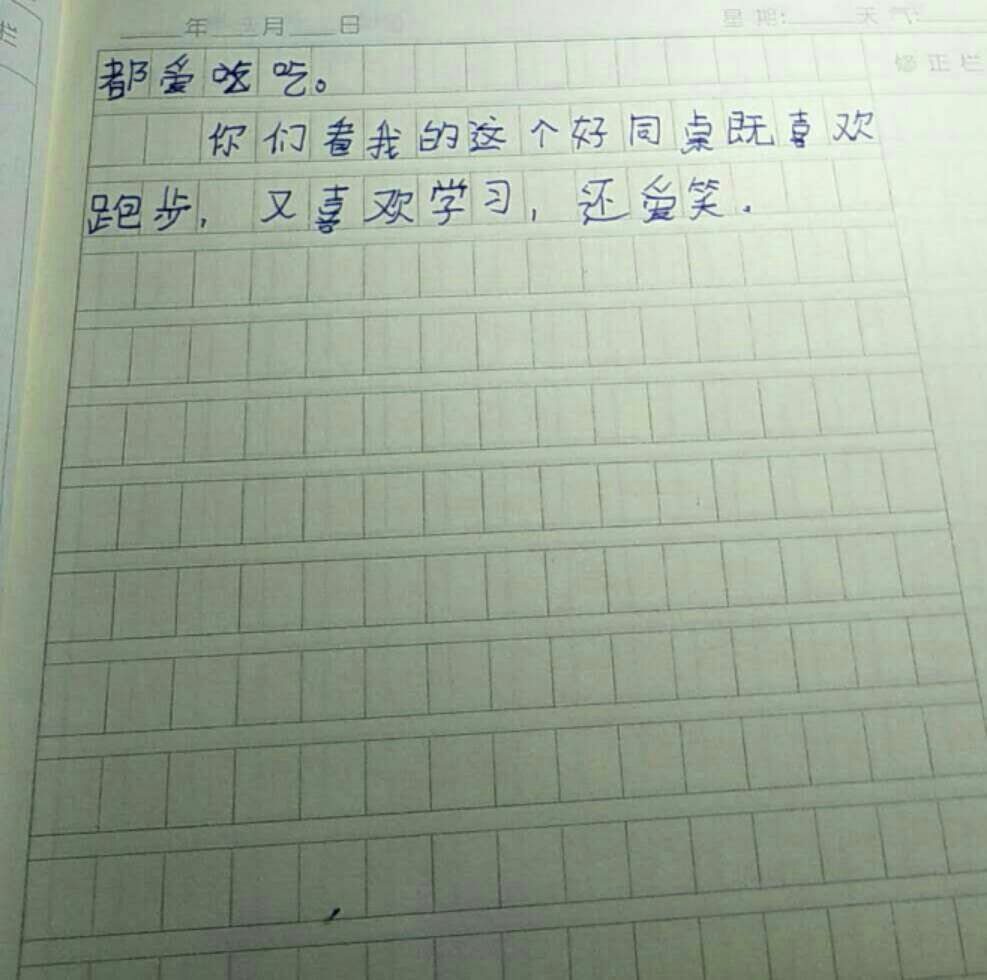 栏
____年____月____日 星期:____天气:____
修正栏
都爱吃吃。
你们看我的这个好同桌既喜欢
跑步,又喜欢学习,还爱笑.